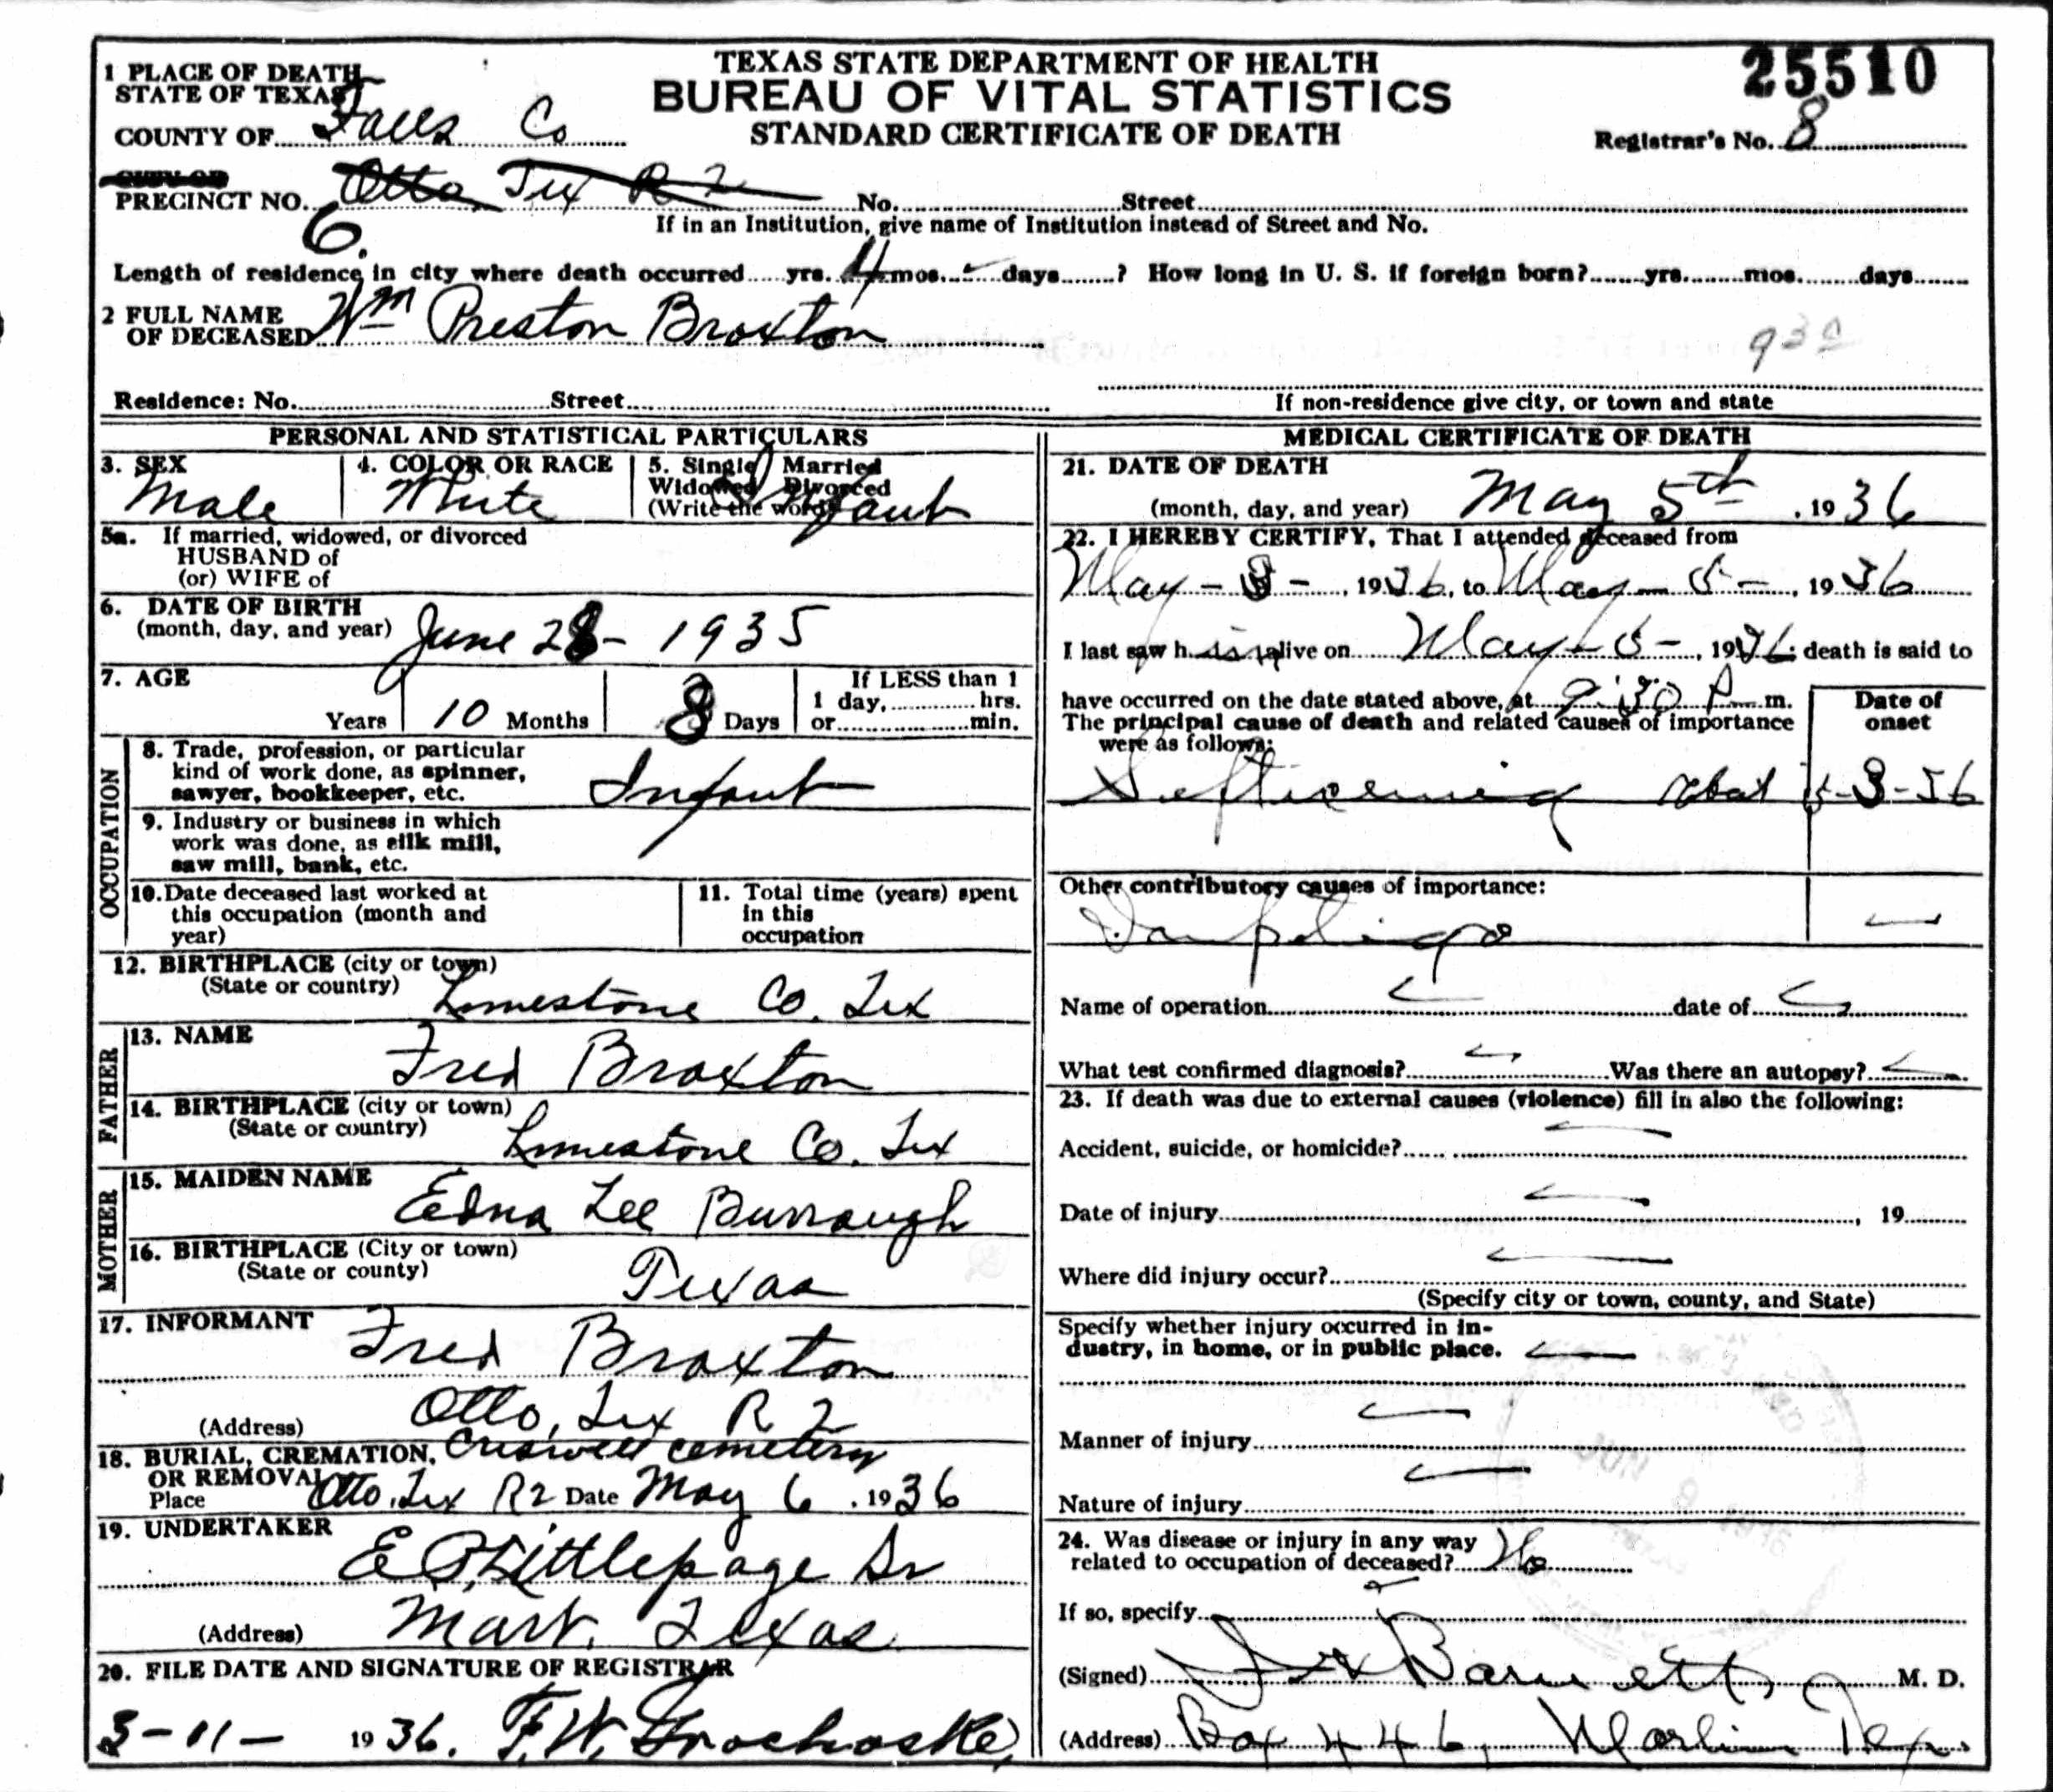 TEXAS STATE DEPARTMENT OF HEALTH
BUREAU OF VITAL STATISTICS
STANDARD CERTIFICATE OF DEATH
25510
Registrar's No. 8
1 PLACE OF DEATH
STATE OF TEXAS
COUNTY OF Falls Co
CITY OR
PRECINCT NO. Otto, Tex R 2 No. Street
6.
If in an Institution, give name of Institution instead of Street and No.
Length of residence in city where death occurred yrs. 4 mos. days ? How long in U. S. if foreign born? yrs. mos. days
2 FULL NAME
OF DECEASED Wm Preston Braxton
930
Residence: No. Street
If non-residence give city, or town and state
PERSONAL AND STATISTICAL PARTICULARS
3. SEX
Male
4. COLOR OR RACE
White
5. Single Married
Widowed Divorced
(Write the word)
Infant
5a. If married, widowed, or divorced
HUSBAND of
(or) WIFE of
6. DATE OF BIRTH
(month, day, and year) June 28 - 1935
7. AGE
Years 10 Months 8 Days
If LESS than 1
1 day, hrs.
or min.
OCCUPATION
8. Trade, profession, or particular
kind of work done, as spinner,
sawyer, bookkeeper, etc. Infant
9. Industry or business in which
work was done, as silk mill,
saw mill, bank, etc.
10. Date deceased last worked at
this occupation (month and
year)
11. Total time (years) spent
in this
occupation
12. BIRTHPLACE (city or town)
(State or country) Limestone Co. Tex
FATHER
13. NAME
Fred Braxton
14. BIRTHPLACE (city or town)
(State or country) Limestone Co. Tex
MOTHER
15. MAIDEN NAME
Edna Lee Burrough
16. BIRTHPLACE (City or town)
(State or county) Texas
17. INFORMANT
Fred Braxton
(Address) Otto, Tex R 2
18. BURIAL, CREMATION, Criswell cemetery
OR REMOVAL
Place Otto, Tex R2 Date May 6, 1936
19. UNDERTAKER
E Littlepage Sr
(Address) Mart, Texas
20. FILE DATE AND SIGNATURE OF REGISTRAR
3-11- 1936. F.W. Grochoske
MEDICAL CERTIFICATE OF DEATH
21. DATE OF DEATH
(month, day, and year) May 5th, 1936
22. I HEREBY CERTIFY, That I attended deceased from
May - 3 -, 1936, to May - 5 -, 1936
I last saw h im alive on May - 5 -, 1936; death is said to
have occurred on the date stated above, at 9:30 P m.
The principal cause of death and related causes of importance
were as follows:
Date of
onset
Septicemia 5-3-36
Other contributory causes of importance:
Impetigo
Name of operation date of
What test confirmed diagnosis? Was there an autopsy?
23. If death was due to external causes (violence) fill in also the following:
Accident, suicide, or homicide?
Date of injury , 19
Where did injury occur?
(Specify city or town, county, and State)
Specify whether injury occurred in in-
dustry, in home, or in public place.
Manner of injury
Nature of injury
24. Was disease or injury in any way
related to occupation of deceased? No
If so, specify
(Signed) Barnett, M. D.
(Address) Box 446, Marlin Tex.